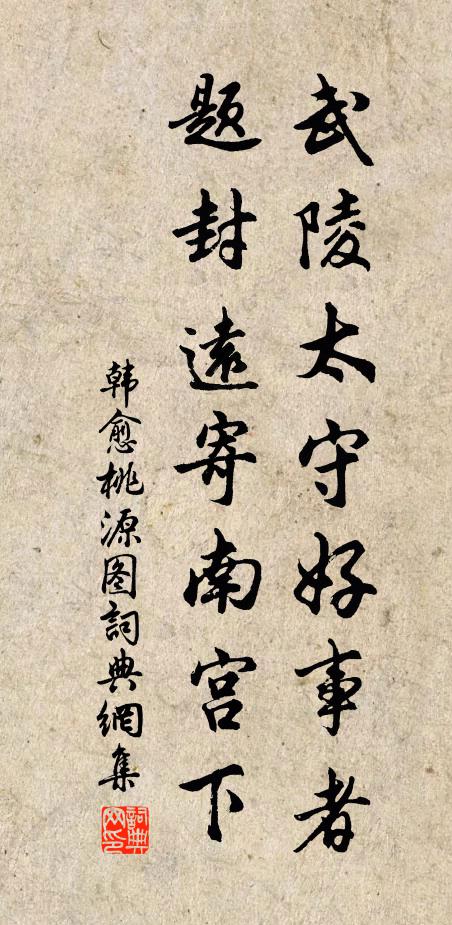 武陵太守好事者
题封遠寄南宫下
韩愈桃源图詞典網集
詞典网印